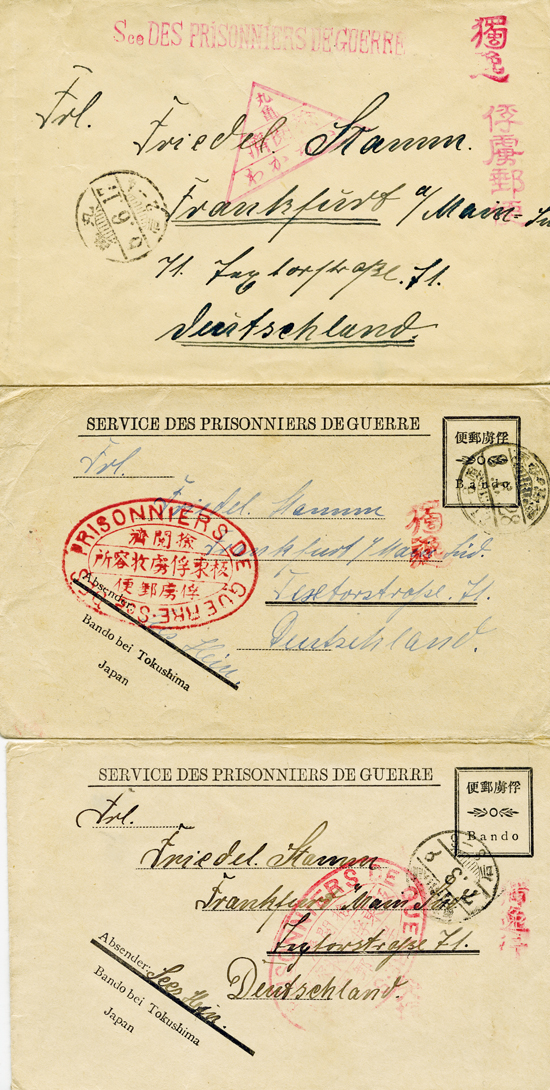 Sce DES PRISONNIERS DE GUERRE
獨逸
俘虜郵便
Frl.
Friedel. Stamm.
Frankfurt a/Main-
71. Textorstraße. 71.
Deutschland.
SERVICE DES PRISONNIERS DE GUERRE
便郵虜俘
Bando
Frl.
Friedel. Stamm
Frankfurt a/Main Süd.
Textorstraße. 71.
Deutschland.
獨逸
PRISONNIERS DE GUERRE
濟閱檢
所容收虜俘東板
便郵虜俘
Absender:
Hein.
Bando bei Tokushima
Japan
SERVICE DES PRISONNIERS DE GUERRE
便郵虜俘
Bando
Frl.
Friedel. Stamm
Frankfurt a/Main Süd
Textorstraße 71.
Deutschland.
SONNIERS DE GUE
Absender:
Hein.
Bando bei Tokushima
Japan